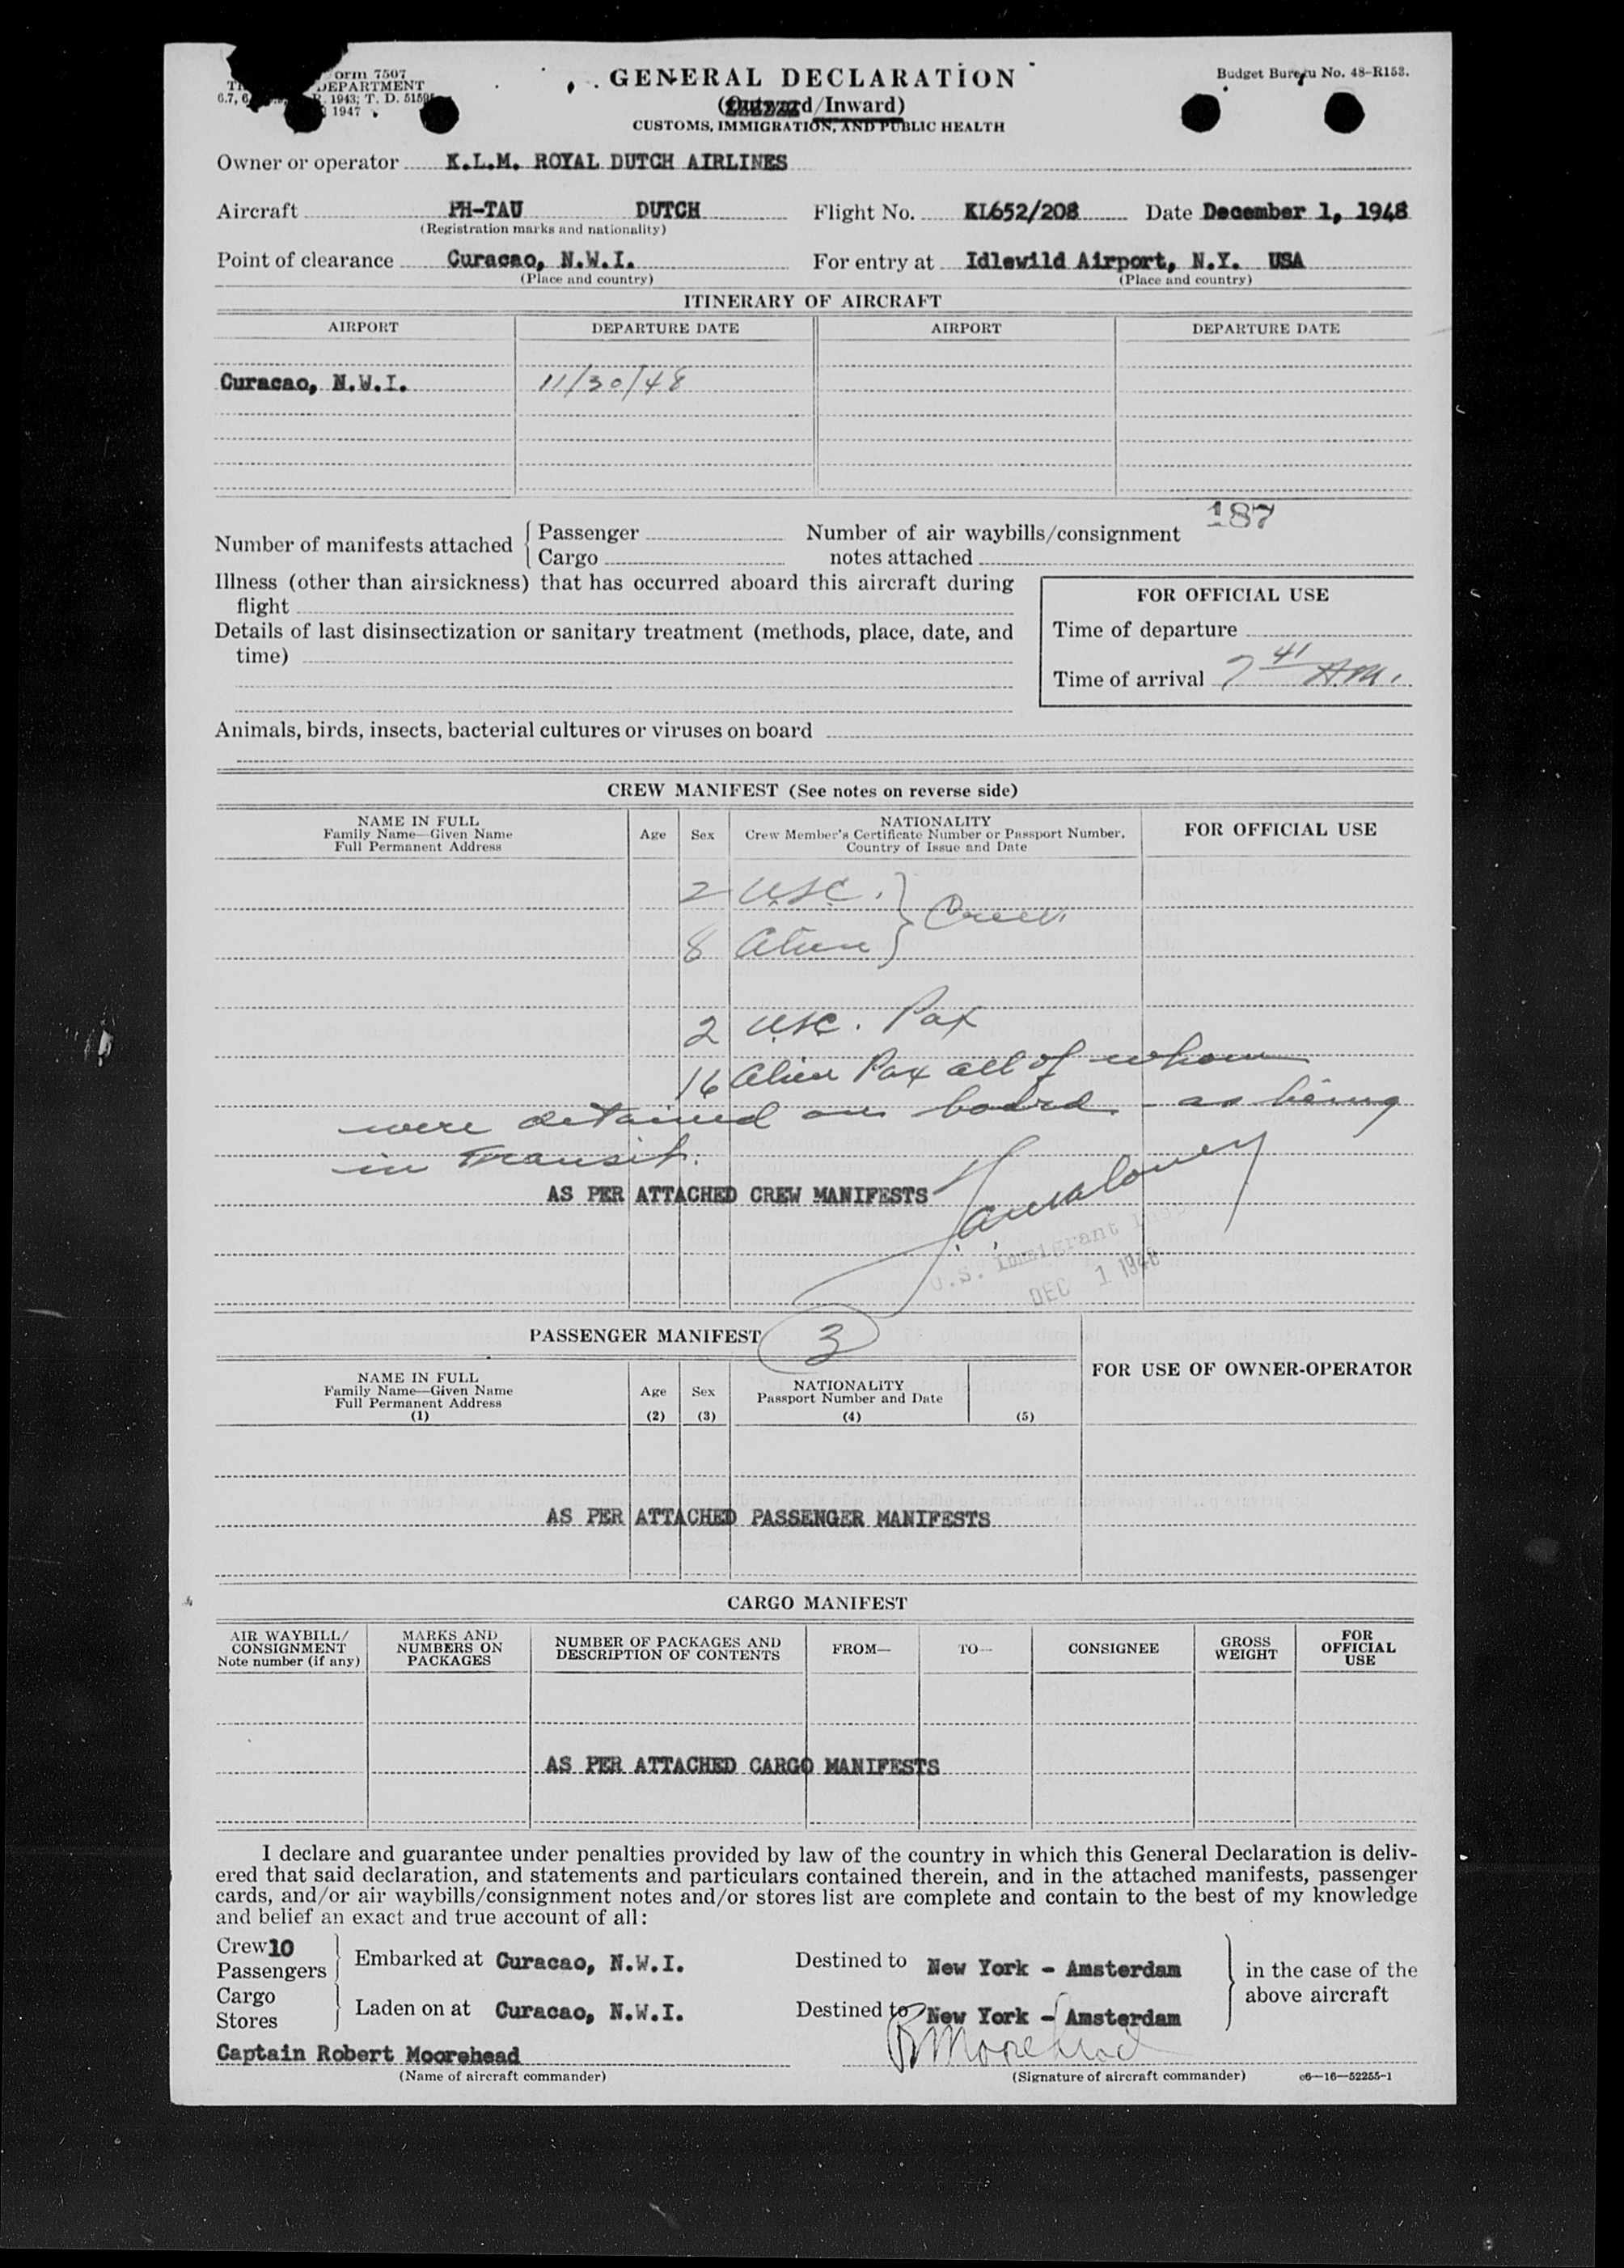 orm 7507
DEPARTMENT
1943; T. D. 5159
1947
GENERAL DECLARATION
(Outward/Inward)
CUSTOMS, IMMIGRATION, AND PUBLIC HEALTH
Budget Bureau No. 48-R153.
Owner or operator K.L.M. ROYAL DUTCH AIRLINES
Aircraft PH-TAU DUTCH Flight No. KL652/208 Date December 1, 1948
(Registration marks and nationality)
Point of clearance Curacao, N.W.I. For entry at Idlewild Airport, N.Y. USA
(Place and country) (Place and country)
ITINERARY OF AIRCRAFT
AIRPORT DEPARTURE DATE AIRPORT DEPARTURE DATE
Curacao, N.W.I. 11/30/48
187
Number of manifests attached { Passenger Number of air waybills/consignment
Cargo notes attached
Illness (other than airsickness) that has occurred aboard this aircraft during
flight
Details of last disinsectization or sanitary treatment (methods, place, date, and
time)
FOR OFFICIAL USE
Time of departure
Time of arrival 7 41 A.M.
Animals, birds, insects, bacterial cultures or viruses on board
CREW MANIFEST (See notes on reverse side)
NAME IN FULL
Family Name—Given Name
Full Permanent Address
Age
Sex
NATIONALITY
Crew Member's Certificate Number or Passport Number,
Country of Issue and Date
FOR OFFICIAL USE
2 USC. } Crew
8 Alien
2 USC. Pax
16 Alien Pax all of whom
were detained on board - as being
in transit.
AS PER ATTACHED CREW MANIFESTS
U.S. Immigrant
DEC 1 1948
PASSENGER MANIFEST 3
NAME IN FULL
Family Name—Given Name
Full Permanent Address
(1)
Age
(2)
Sex
(3)
NATIONALITY
Passport Number and Date
(4)
(5)
FOR USE OF OWNER-OPERATOR
AS PER ATTACHED PASSENGER MANIFESTS
CARGO MANIFEST
AIR WAYBILL/
CONSIGNMENT
Note number (if any)
MARKS AND
NUMBERS ON
PACKAGES
NUMBER OF PACKAGES AND
DESCRIPTION OF CONTENTS
FROM—
TO—
CONSIGNEE
GROSS
WEIGHT
FOR
OFFICIAL
USE
AS PER ATTACHED CARGO MANIFESTS
I declare and guarantee under penalties provided by law of the country in which this General Declaration is deliv-
ered that said declaration, and statements and particulars contained therein, and in the attached manifests, passenger
cards, and/or air waybills/consignment notes and/or stores list are complete and contain to the best of my knowledge
and belief an exact and true account of all:
Crew 10
Passengers
Embarked at Curacao, N.W.I. Destined to New York - Amsterdam
Cargo
Stores
Laden on at Curacao, N.W.I. Destined to New York - Amsterdam
in the case of the
above aircraft
Captain Robert Moorehead RMoorehead
(Name of aircraft commander) (Signature of aircraft commander) c6—16—52255-1